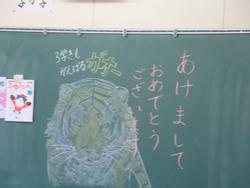 あけまして
おめでとう
ございます
3学きも
がんばるガオー